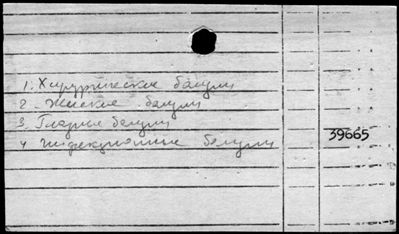 1. Хирургические болезни
2. Женские болезни
3. Глазные болезни
4. Инфекционные болезни
39665